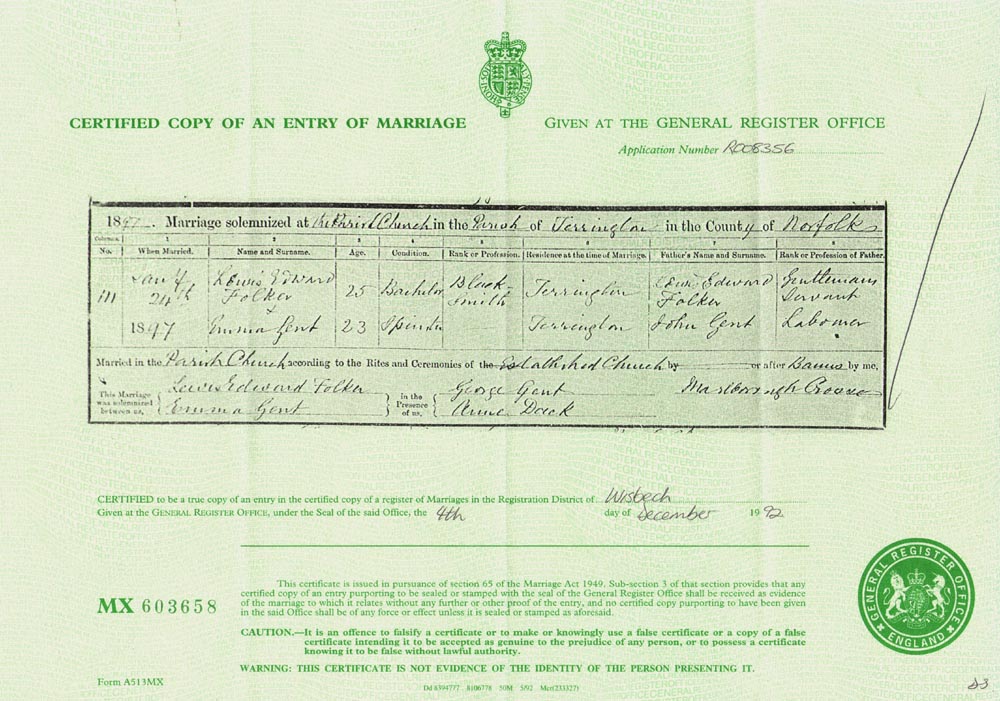 CERTIFIED COPY OF AN ENTRY OF MARRIAGE
GIVEN AT THE GENERAL REGISTER OFFICE
Application Number R008356
1897. Marriage solemnized at the Parish Church in the Parish of Terrington in the County of Norfolk
Columns:— 1 2 3 4 5 6 7 8
No. When Married. Name and Surname. Age. Condition. Rank or Profession. Residence at the time of Marriage. Father's Name and Surname. Rank or Profession of Father.
111 Jany 24th 1897
Lewis Edward Folker 25 Bachelor Black-smith Terrington Lewis Edward Folker Gentlemans Servant
Emma Gent 23 Spinster Terrington John Gent Labourer
Married in the Parish Church according to the Rites and Ceremonies of the Established Church by or after Banns by me,
This Marriage was solemnized between us, Lewis Edward Folker Emma Gent
in the Presence of us, George Gent Anne Dack
Marlborough
CERTIFIED to be a true copy of an entry in the certified copy of a register of Marriages in the Registration District of Wisbech
Given at the GENERAL REGISTER OFFICE, under the Seal of the said Office, the 4th day of December 1992
MX 603658
This certificate is issued in pursuance of section 65 of the Marriage Act 1949. Sub-section 3 of that section provides that any
certified copy of an entry purporting to be sealed or stamped with the seal of the General Register Office shall be received as evidence
of the marriage to which it relates without any further or other proof of the entry, and no certified copy purporting to have been given
in the said Office shall be of any force or effect unless it is sealed or stamped as aforesaid.
CAUTION.—It is an offence to falsify a certificate or to make or knowingly use a false certificate or a copy of a false
certificate intending it to be accepted as genuine to the prejudice of any person, or to possess a certificate
knowing it to be false without lawful authority.
WARNING: THIS CERTIFICATE IS NOT EVIDENCE OF THE IDENTITY OF THE PERSON PRESENTING IT.
GENERAL REGISTER OFFICE
ENGLAND
Form A513MX
Dd 8394777 8106778 50M 5/92 Mcr(233327)